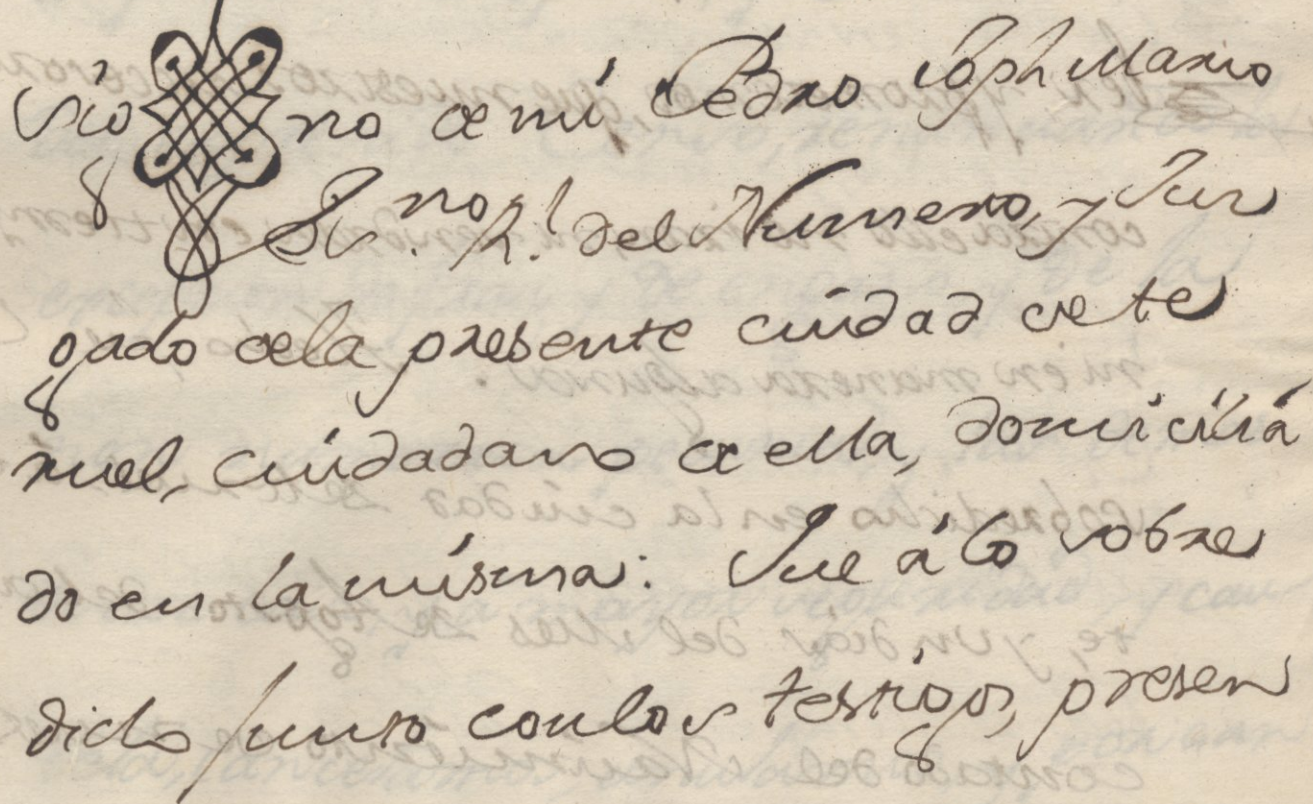 Sig no de mi Pedro Joph Mario
Es.no R.l del Numero, y Juz
gado de la presente ciudad de te
ruel, ciudadano de ella, domicilia
do en la misma: Que á lo sobre
dicho junto con los testigos, presen